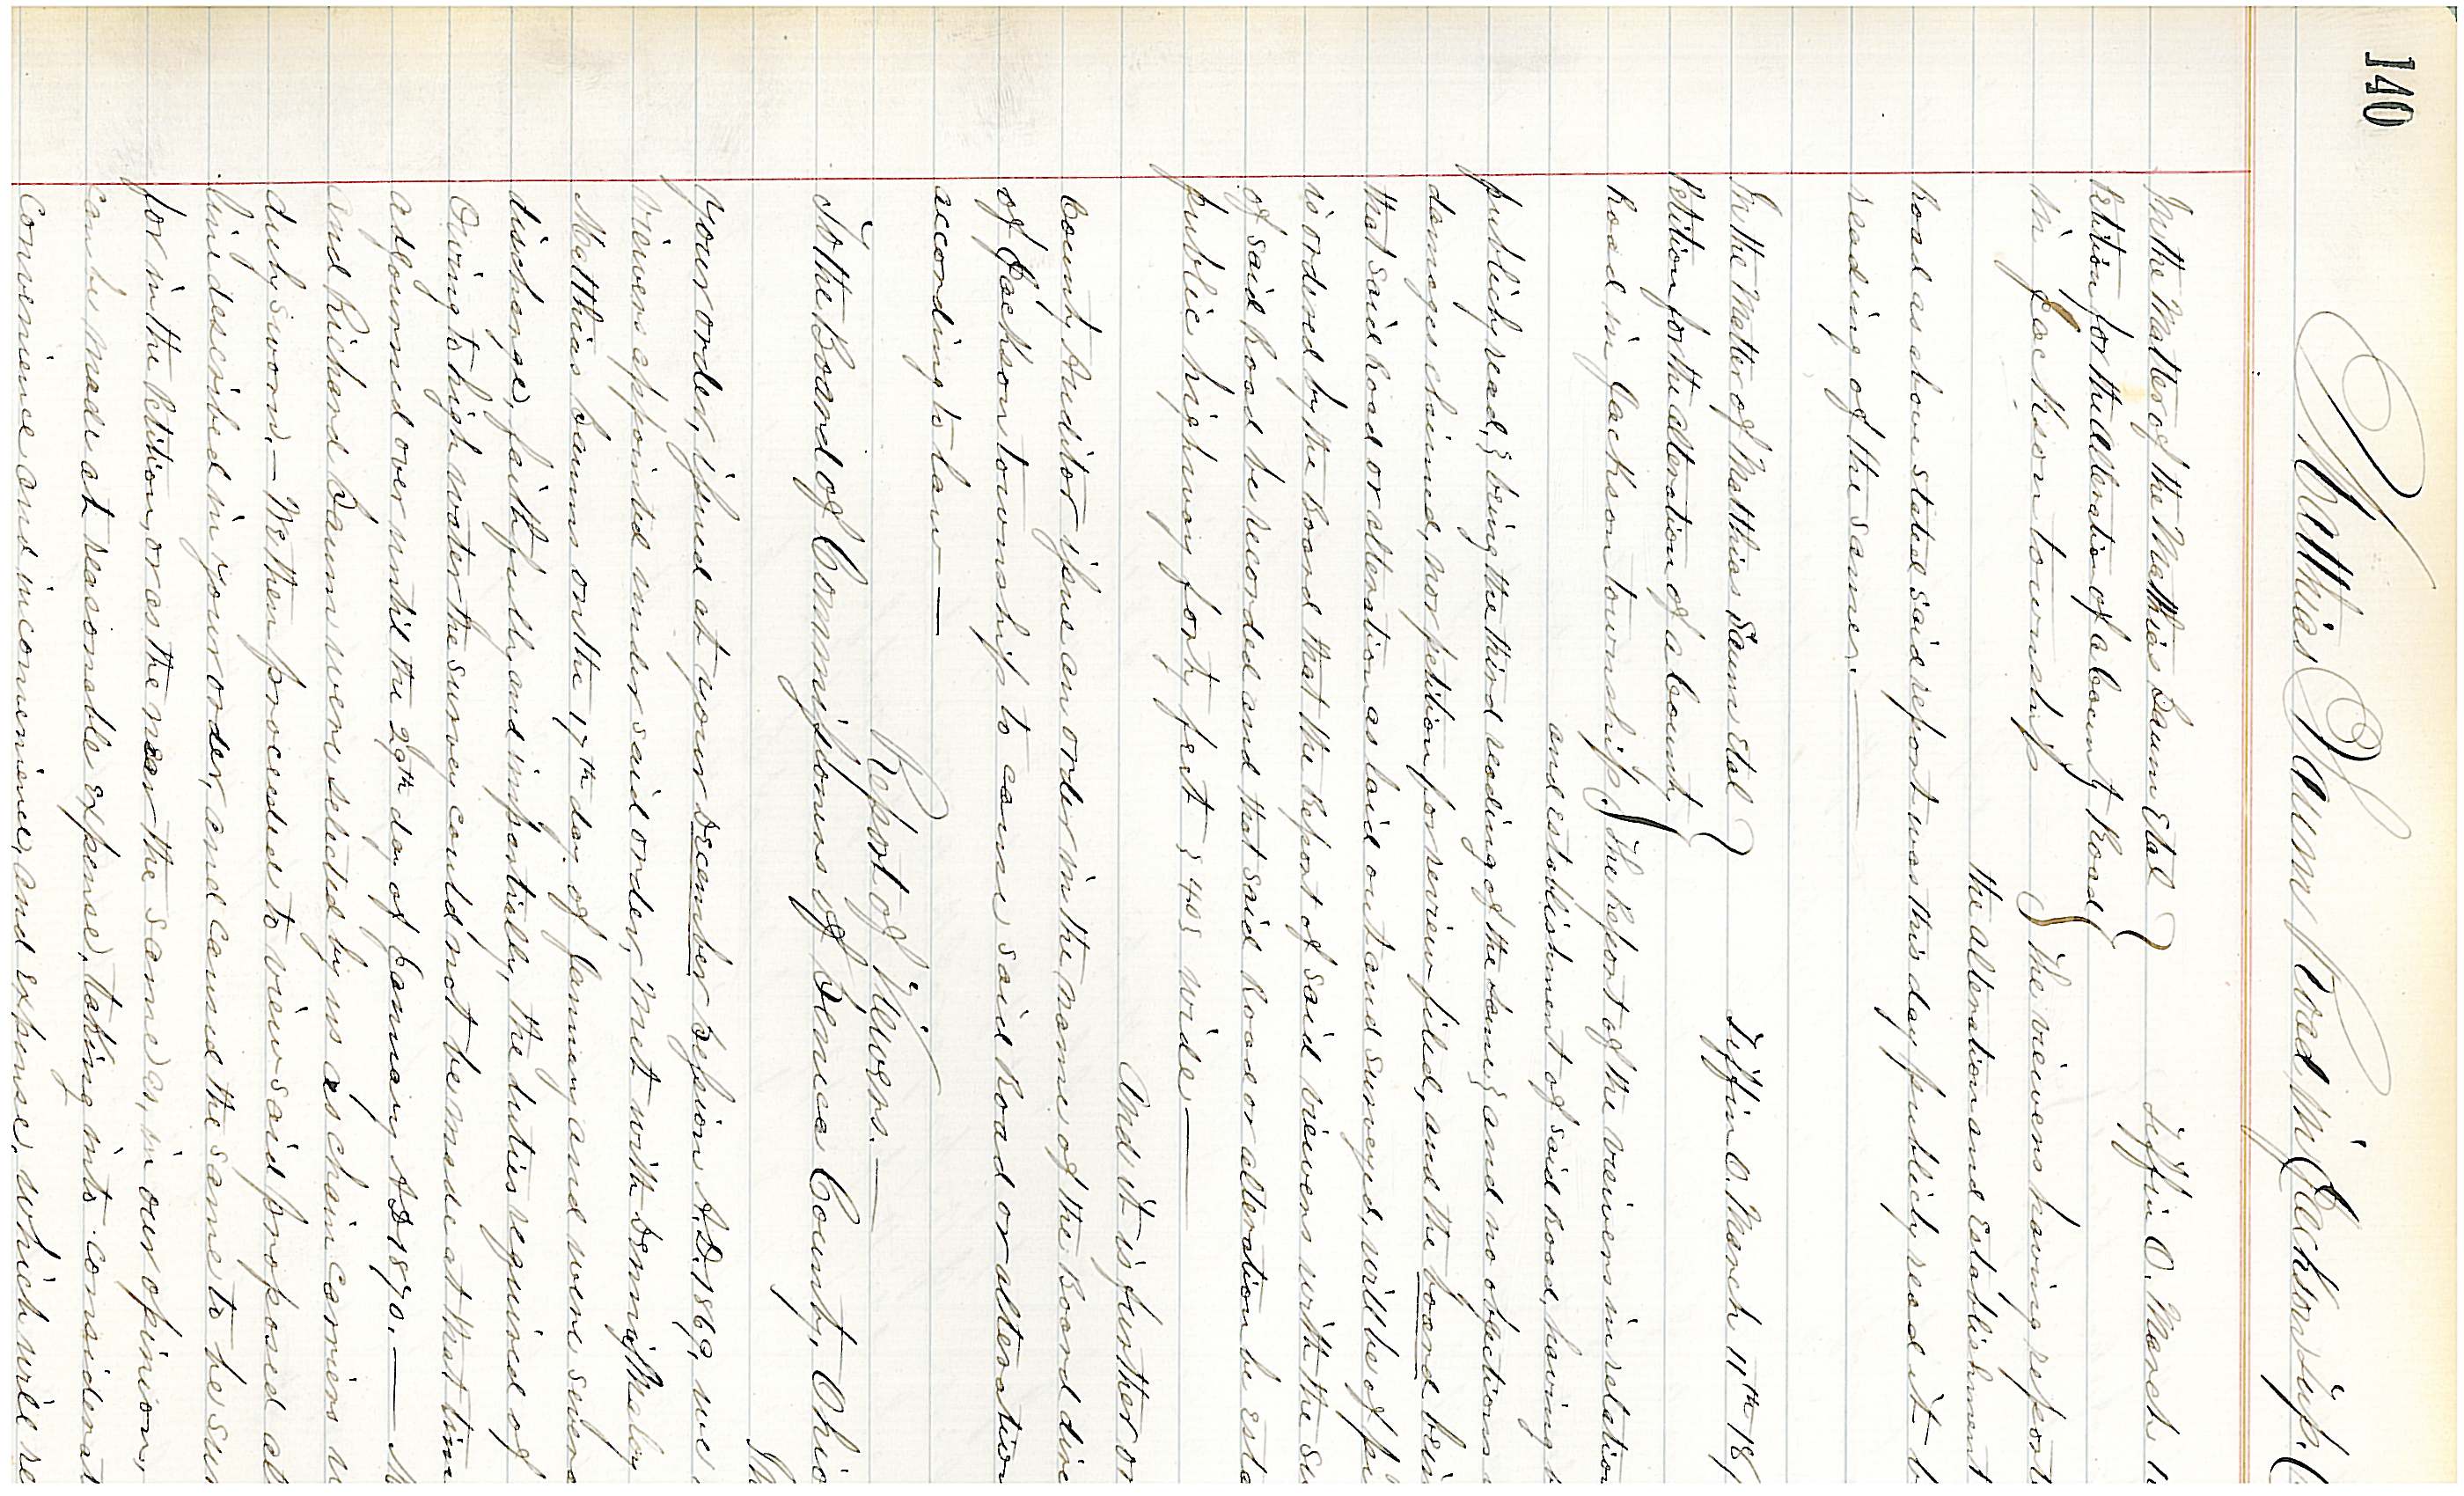 140
Matthias Baum Road in Jackson tup. (
In the Matter of the Matthias Baum Etal } Tiffin O. March 1
Petition for the alteration of a County Road }
in Jackson township } The viewers having report
the alteration and Establishment
Road as above stated said report was this day publicly read it b
reading of the same.—
In the Matter of Matthias Baum Etal } Tiffin O. March 11th 18
Petition for the alteration of a County }
Road in Jackson township. } The Report of the viewers in relation
and establishment of said Road, having
publicly read, & being the third reading of the same, and no objections
damages claimed, nor petition for review filed, and the board bein
that said Road or alteration as laid out and surveyed, will be of p
is ordered by the Board that the Report of said viewers with the su
of said Road be recorded and that said Road or alteration be esta
public highway forty feet § 40 § wide.—
And it is further or
County Auditor issue an order in the name of the Board dire
of Jackson township to cause said Road or alteration
according to law—
Report of Viewers.—
To the Board of Commissioners of Seneca County, Ohio
In
your order, issued at your December Session A.D. 1869, we
viewers appointed under said order, met with Dennis Maloy
Matthias Baum on the 17th day of January and were severa
discharge, faithfully and impartially, the duties required of
Owing to high water the survey could not be made at that time
adjourned over until the 29th day of January A D 1870.— M
and Richard Baum were selected by us as chain carriers w
duly sworn.— We then proceeded to view said proposed al
lin described in your order, and caused the same to be sur
for in the Petition, or as the near the same as, in our opinion,
can be made at reasonable expense, taking into considerat
convenience and inconvenience, and expense, which will re